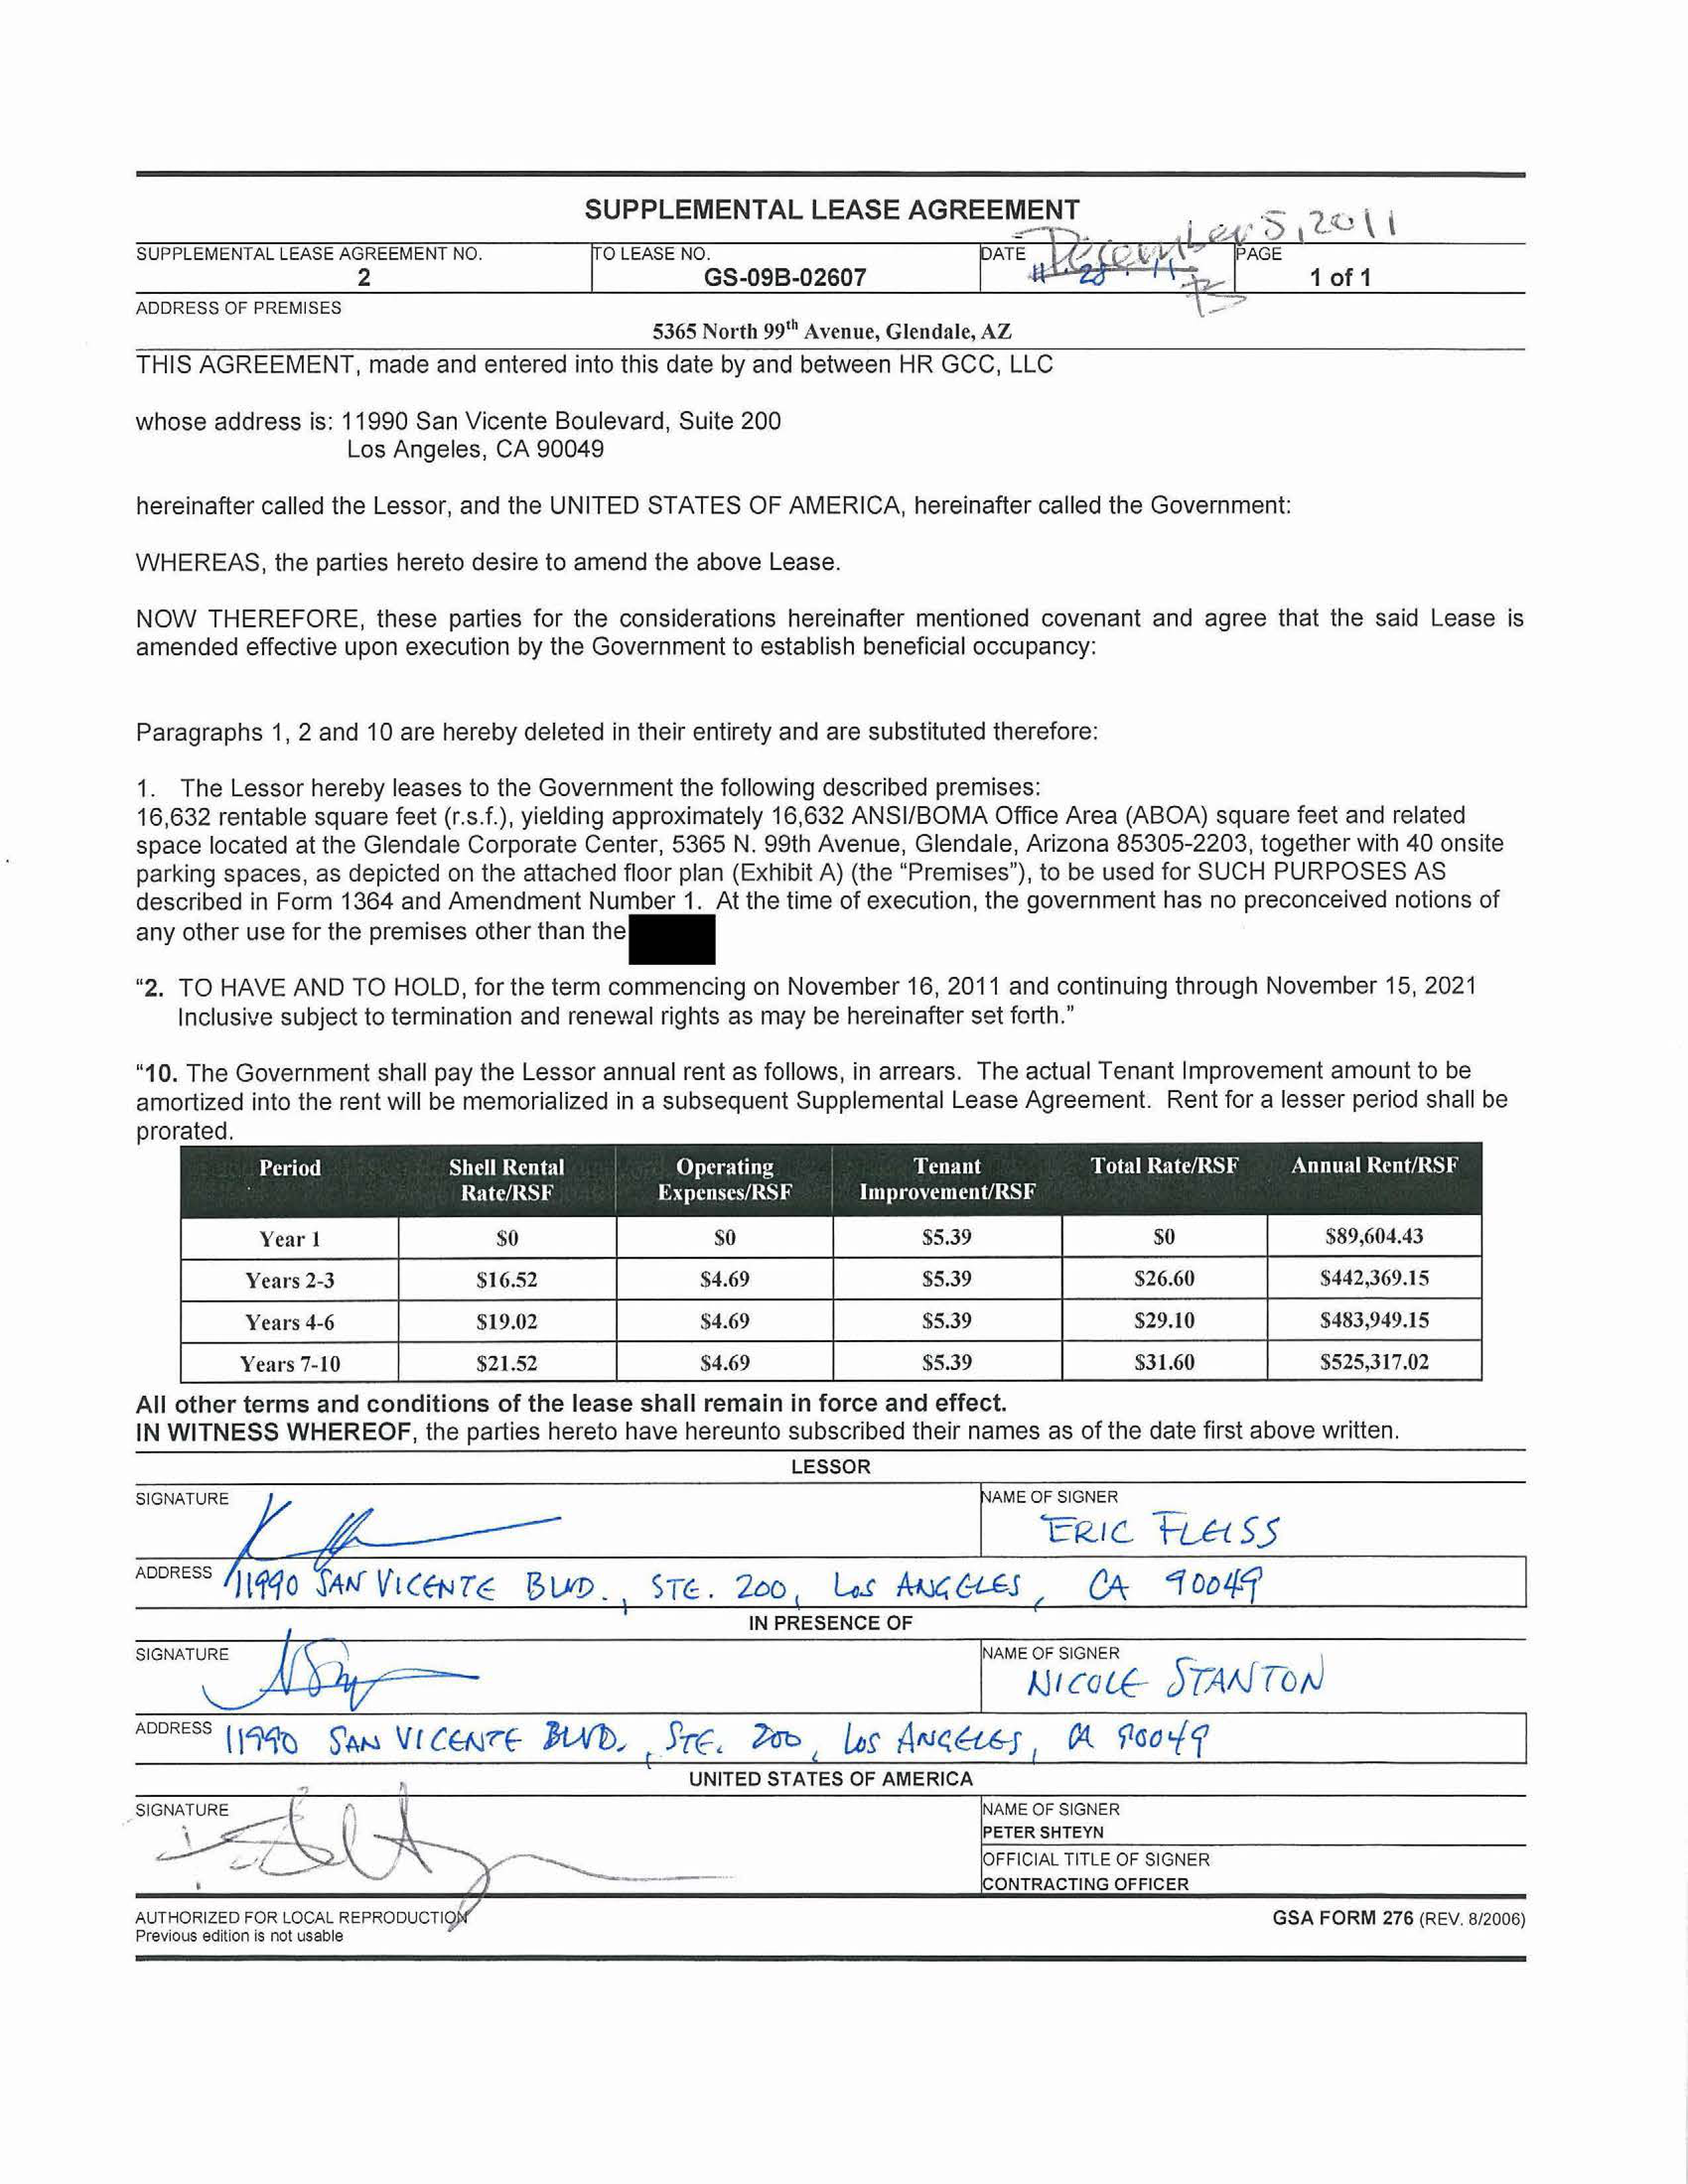 SUPPLEMENTAL LEASE AGREEMENT
SUPPLEMENTAL LEASE AGREEMENT NO.
2
TO LEASE NO.
GS-09B-02607
DATE
December 5, 2011
28 . 11
PAGE
1 of 1
ADDRESS OF PREMISES
5365 North 99th Avenue, Glendale, AZ
THIS AGREEMENT, made and entered into this date by and between HR GCC, LLC
whose address is: 11990 San Vicente Boulevard, Suite 200
Los Angeles, CA 90049
hereinafter called the Lessor, and the UNITED STATES OF AMERICA, hereinafter called the Government:
WHEREAS, the parties hereto desire to amend the above Lease.
NOW THEREFORE, these parties for the considerations hereinafter mentioned covenant and agree that the said Lease is
amended effective upon execution by the Government to establish beneficial occupancy:
Paragraphs 1, 2 and 10 are hereby deleted in their entirety and are substituted therefore:
1. The Lessor hereby leases to the Government the following described premises:
16,632 rentable square feet (r.s.f.), yielding approximately 16,632 ANSI/BOMA Office Area (ABOA) square feet and related
space located at the Glendale Corporate Center, 5365 N. 99th Avenue, Glendale, Arizona 85305-2203, together with 40 onsite
parking spaces, as depicted on the attached floor plan (Exhibit A) (the “Premises”), to be used for SUCH PURPOSES AS
described in Form 1364 and Amendment Number 1. At the time of execution, the government has no preconceived notions of
any other use for the premises other than the
“2. TO HAVE AND TO HOLD, for the term commencing on November 16, 2011 and continuing through November 15, 2021
Inclusive subject to termination and renewal rights as may be hereinafter set forth.”
“10. The Government shall pay the Lessor annual rent as follows, in arrears. The actual Tenant Improvement amount to be
amortized into the rent will be memorialized in a subsequent Supplemental Lease Agreement. Rent for a lesser period shall be
prorated.
Period Shell Rental Operating Tenant Total Rate/RSF Annual Rent/RSF
Rate/RSF Expenses/RSF Improvement/RSF
Year 1 $0 $0 $5.39 $0 $89,604.43
Years 2-3 $16.52 $4.69 $5.39 $26.60 $442,369.15
Years 4-6 $19.02 $4.69 $5.39 $29.10 $483,949.15
Years 7-10 $21.52 $4.69 $5.39 $31.60 $525,317.02
All other terms and conditions of the lease shall remain in force and effect.
IN WITNESS WHEREOF, the parties hereto have hereunto subscribed their names as of the date first above written.
LESSOR
SIGNATURE
NAME OF SIGNER
ERIC FLEISS
ADDRESS 11990 SAN VICENTE BLVD., STE. 200, LOS ANGELES, CA 90049
IN PRESENCE OF
SIGNATURE
NAME OF SIGNER
NICOLE STANTON
ADDRESS 11990 SAN VICENTE BLVD., STE. 200, LOS ANGELES, CA 90049
UNITED STATES OF AMERICA
SIGNATURE
NAME OF SIGNER
PETER SHTEYN
OFFICIAL TITLE OF SIGNER
CONTRACTING OFFICER
AUTHORIZED FOR LOCAL REPRODUCTION
Previous edition is not usable
GSA FORM 276 (REV. 8/2006)